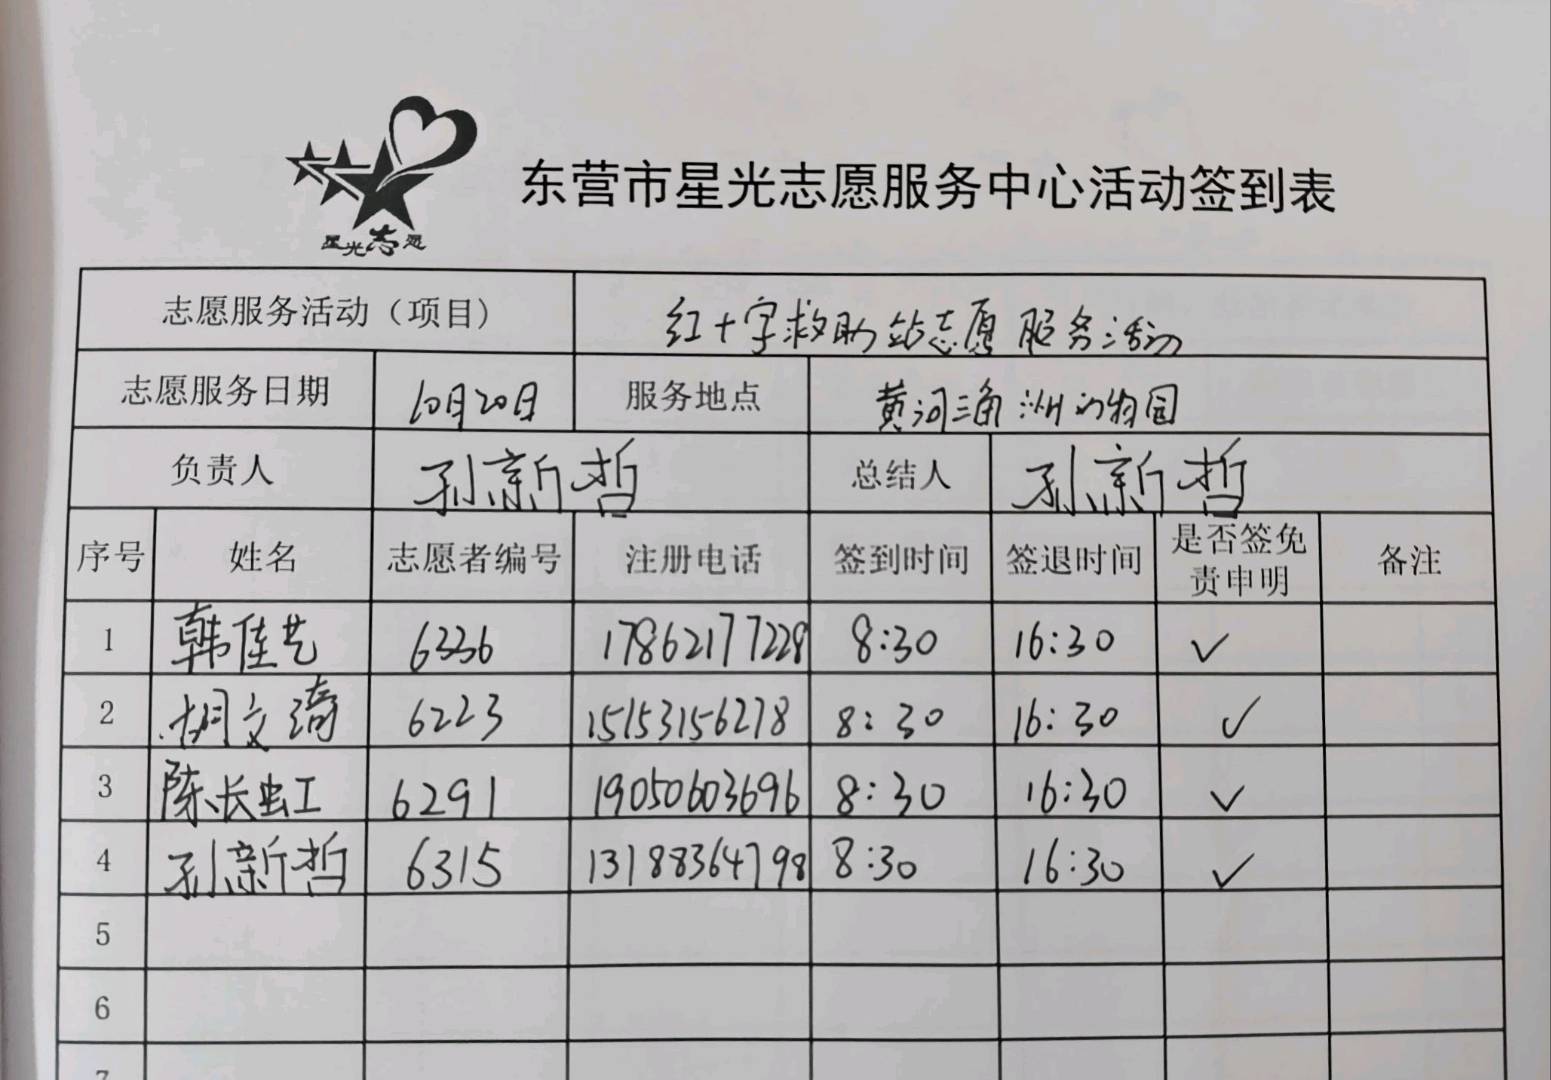 星光志愿
东营市星光志愿服务中心活动签到表
志愿服务活动（项目） 红十字救助站志愿服务活动
志愿服务日期 10月20日 服务地点 黄河三角洲动物园
负责人 孙新哲 总结人 孙新哲
序号 姓名 志愿者编号 注册电话 签到时间 签退时间 是否签免责申明 备注
1 韩佳艺 6336 17862177228 8:30 16:30 ✓
2 胡文漪 6223 15153156278 8:30 16:30 ✓
3 陈长虹 6291 19050603696 8:30 16:30 ✓
4 孙新哲 6315 13188364798 8:30 16:30 ✓
5
6
7